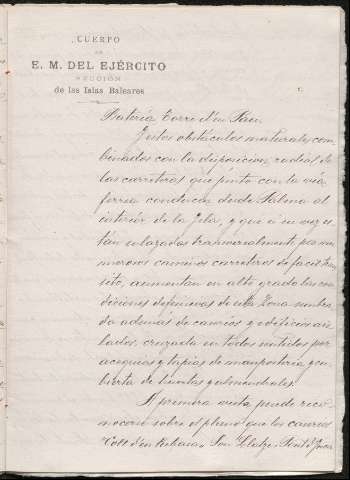 CUERPO
DE
E. M. DEL EJÉRCITO
SECCIÓN
de las Islas Baleares
Batería Torre d'en Pau.
Estos obstáculos naturales, com-
binados con la disposicion radial de
las carreteras que junto con la vía
ferrea conducen desde Palma al
interior de la Isla, y que á su vez es-
tán enlazados transversalmente por nu-
merosos caminos carreteros de facil tran-
sito, aumentan en alto grado las con-
diciones defensivas de esta zona sembra-
da además de caseríos y edificios ais-
lados, cruzada en todos sentidos por
acequias y tapias de mampostería y cu-
bierta de huertas y almendrales.
A primera vista puede reco-
nocerse sobre el plano que los caseríos
Coll d'en Son Pont d'Inca